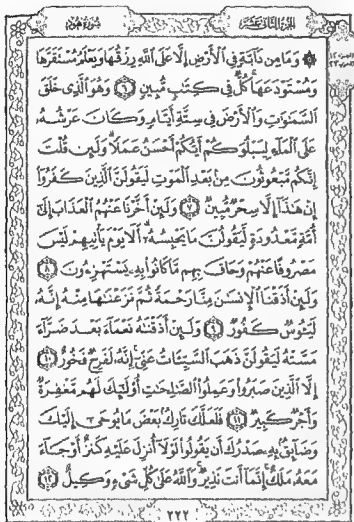 الجزء الثاني عشر
سورة هود
۞ وَمَا مِن دَآبَّةٍ فِى ٱلْأَرْضِ إِلَّا عَلَى ٱللَّهِ رِزْقُهَا وَيَعْلَمُ مُسْتَقَرَّهَا
وَمُسْتَوْدَعَهَا ۚ كُلٌّ فِى كِتَٰبٍ مُّبِينٍ ٦ وَهُوَ ٱلَّذِى خَلَقَ
ٱلسَّمَٰوَٰتِ وَٱلْأَرْضَ فِى سِتَّةِ أَيَّامٍ وَكَانَ عَرْشُهُۥ
عَلَى ٱلْمَآءِ لِيَبْلُوَكُمْ أَيُّكُمْ أَحْسَنُ عَمَلًا ۗ وَلَئِن قُلْتَ
إِنَّكُم مَّبْعُوثُونَ مِنۢ بَعْدِ ٱلْمَوْتِ لَيَقُولَنَّ ٱلَّذِينَ كَفَرُوٓا۟
إِنْ هَٰذَآ إِلَّا سِحْرٌ مُّبِينٌ ٧ وَلَئِنْ أَخَّرْنَا عَنْهُمُ ٱلْعَذَابَ إِلَىٰٓ
أُمَّةٍ مَّعْدُودَةٍ لَّيَقُولُنَّ مَا يَحْبِسُهُۥٓ ۗ أَلَا يَوْمَ يَأْتِيهِمْ لَيْسَ
مَصْرُوفًا عَنْهُمْ وَحَاقَ بِهِم مَّا كَانُوا۟ بِهِۦ يَسْتَهْزِءُونَ ٨
وَلَئِنْ أَذَقْنَا ٱلْإِنسَٰنَ مِنَّا رَحْمَةً ثُمَّ نَزَعْنَٰهَا مِنْهُ إِنَّهُۥ
لَيَـُٔوسٌ كَفُورٌ ٩ وَلَئِنْ أَذَقْنَٰهُ نَعْمَآءَ بَعْدَ ضَرَّآءَ
مَسَّتْهُ لَيَقُولَنَّ ذَهَبَ ٱلسَّيِّـَٔاتُ عَنِّىٓ ۚ إِنَّهُۥ لَفَرِحٌ فَخُورٌ ١٠
إِلَّا ٱلَّذِينَ صَبَرُوا۟ وَعَمِلُوا۟ ٱلصَّٰلِحَٰتِ أُو۟لَٰٓئِكَ لَهُم مَّغْفِرَةٌ
وَأَجْرٌ كَبِيرٌ ١١ فَلَعَلَّكَ تَارِكٌۢ بَعْضَ مَا يُوحَىٰٓ إِلَيْكَ
وَضَآئِقٌۢ بِهِۦ صَدْرُكَ أَن يَقُولُوا۟ لَوْلَآ أُنزِلَ عَلَيْهِ كَنزٌ أَوْ جَآءَ
مَعَهُۥ مَلَكٌ ۚ إِنَّمَآ أَنتَ نَذِيرٌ ۚ وَٱللَّهُ عَلَىٰ كُلِّ شَىْءٍ وَكِيلٌ ١٢
٢٢٢